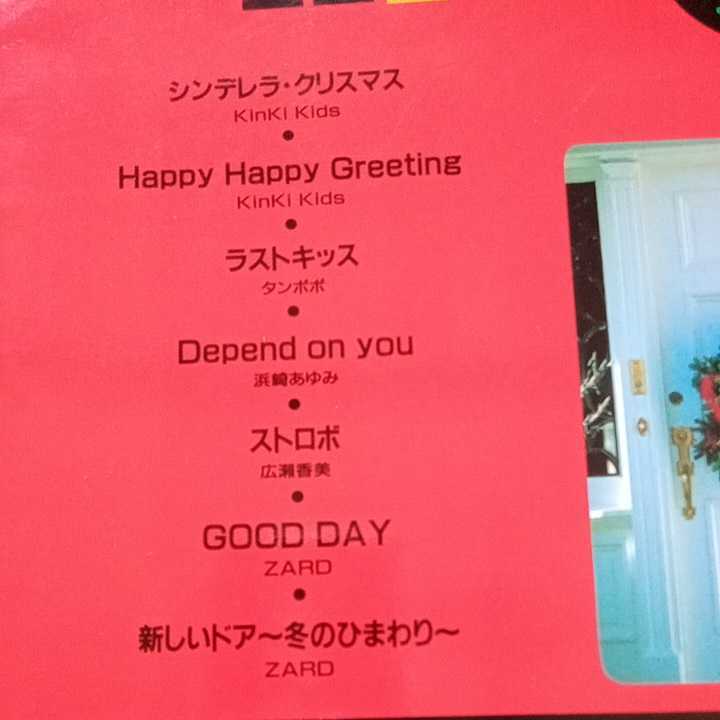 シンデレラ・クリスマス
KinKi Kids
Happy Happy Greeting
KinKi Kids
ラストキッス
タンポポ
Depend on you
浜崎あゆみ
ストロボ
広瀬香美
GOOD DAY
ZARD
新しいドア〜冬のひまわり〜
ZARD